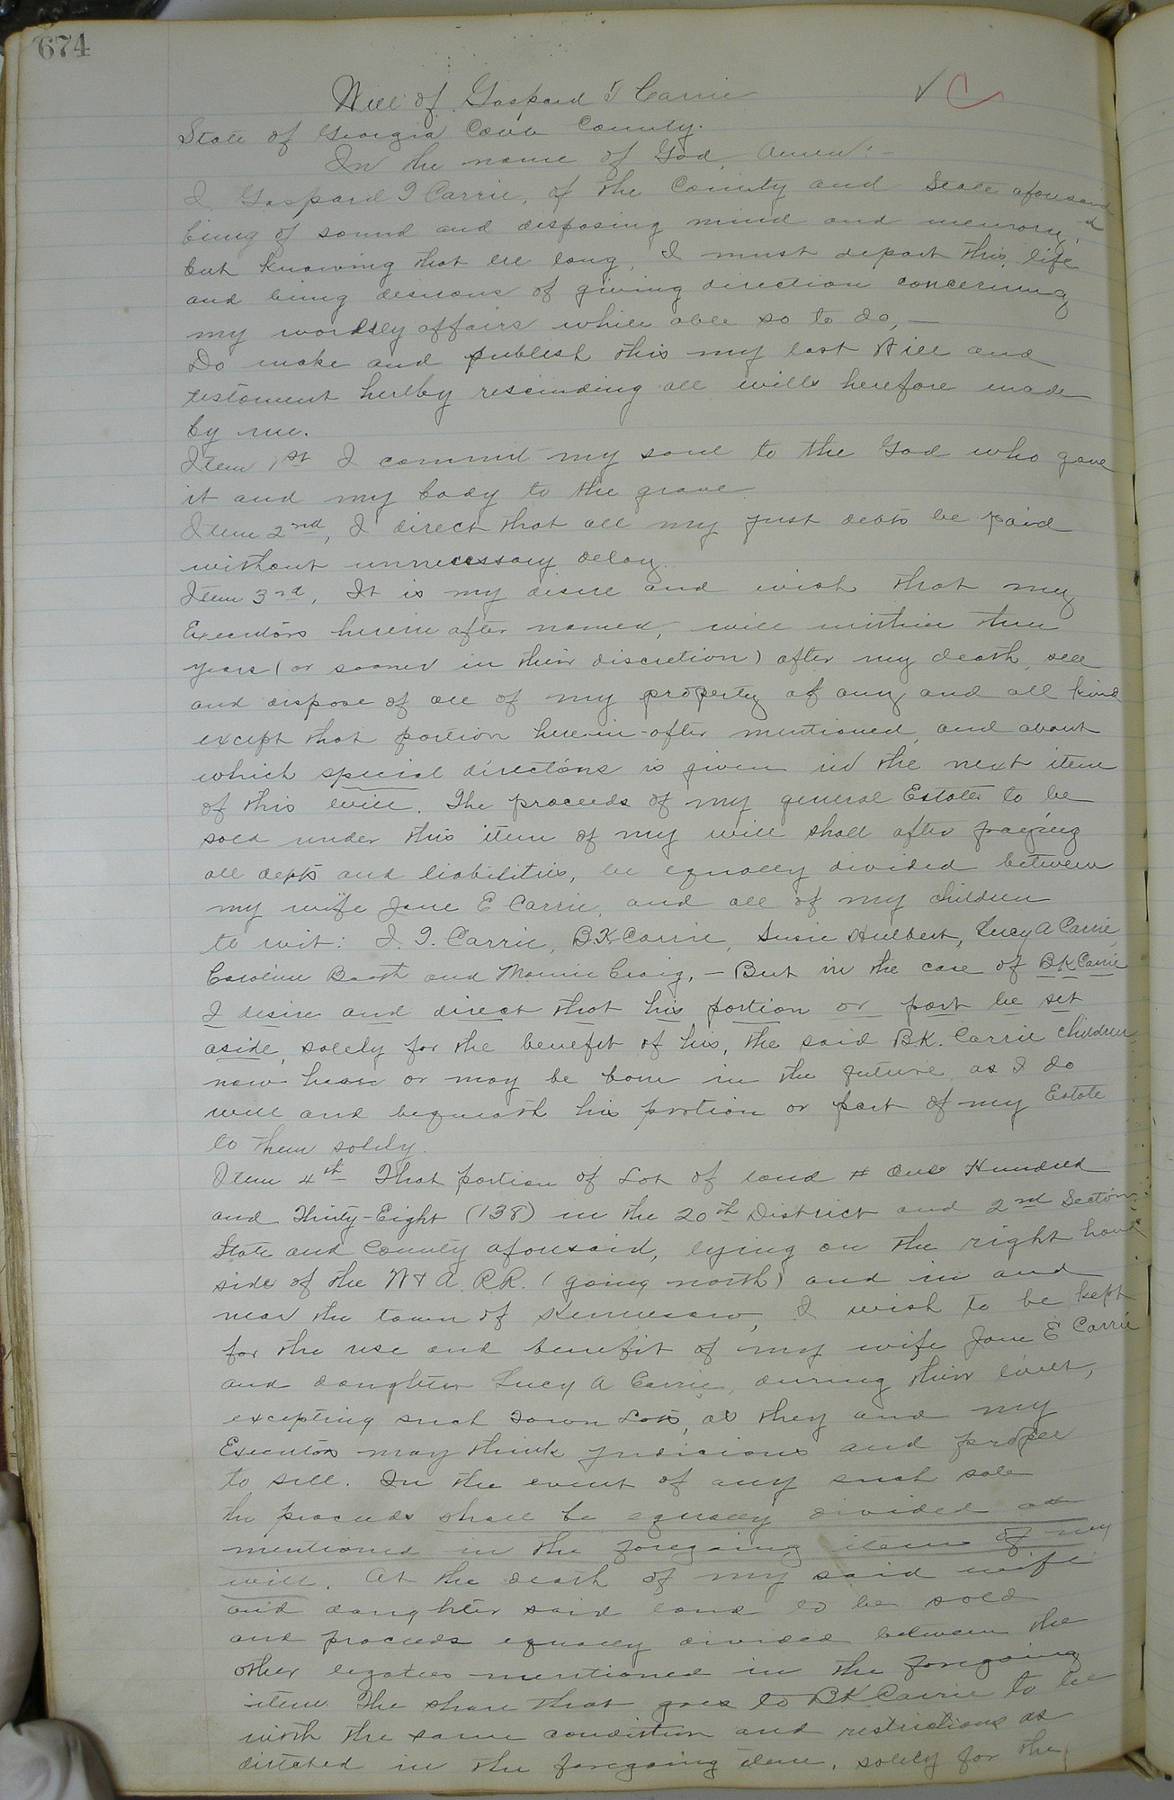 674
Will of Gaspard T Carrie
State of Georgia Cobb County.
In the name of God, Amen:-
I Gaspard T Carrie, of the County and State aforesaid
being of sound and disposing mind and memory,
but knowing that ere long, I must depart this life
and being desirous of giving direction concerning
my wordsly affairs while able so to do,—
Do make and publish this my last Will and
testament herelby rescinding all wills herefore made
by me.
Item 1st I commit my soul to the God who gave
it and my body to the grave
Item 2nd, I direct that all my just debts be paid
without unnecessary delay.
Item 3rd, It is my desire and wish that my
Executors herein after named, will within three
years (or sooner in their discretion) after my death, sell
and dispose of all of my property of any and all kind
except that portion herein-after mentioned, and about
which special directions is given in the next item
of this will. The proceeds of my general Estate to be
sold under this item of my will shall after paying
all debts and liabilities, be equally divided between
my wife Jane E Carrie, and all of my children
to wit: J. T. Carrie, B.K Carrie, Susie Hulbert, Lucy A Carrie,
Caroline and Mamie Craig,— But in the case of B.K Carrie
I desire and direct that his portion or part be set
aside, solely for the benefit of his, the said B.K. Carrie children
now or may be born in the future, as I do
will and bequeath his portion or part of my Estate
to them solely.
Item 4th That portion of Lot of land # One Hundred
and Thirty-Eight (138) in the 20th District and 2nd Section
State and County aforesaid, lying on the right hand
side of the W & A. R.R. (going north) and in and
near the town of Kennesaw, I wish to be kept
for the use and benefit of my wife Jane E Carrie
and daughter Lucy A Carrie, during their lives,
excepting such Town Lots, as they and my
Executors may think judicious and proper
to sell. In the event of any such sale
the proceeds shall be equally divided as
mentioned in the foregoing item of my
will. At the death of my said wife
and daughter said land to be sold
and proceeds equally divided between the
other legatees mentioned in the foregoing
item. The share that goes to B.K. Carrie to be
with the same condition and restrictions as
directed in the foregoing item, solely for the